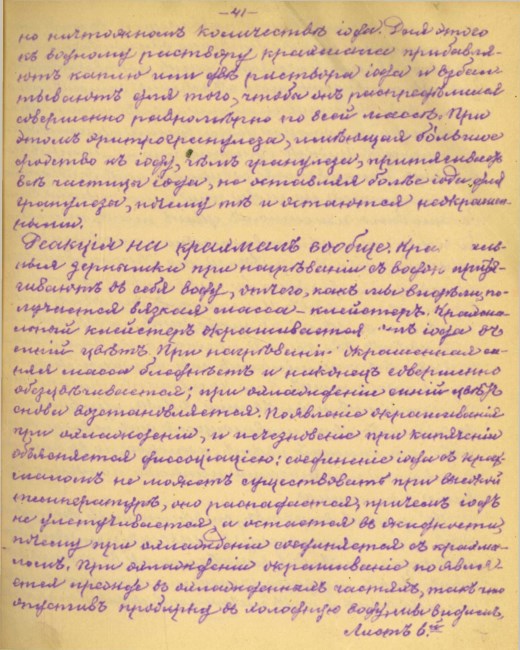 — 41 —
но ничтожномъ количествѣ іода. Для этого
къ водному раствору крахмала прибавля-
ютъ каплю или двѣ раствора іода и взбал-
тываютъ для того, чтобы онъ распредѣлился
совершенно равномѣрно по всей массѣ. При
этомъ эритрогранулеза, имѣющая большое
сродство къ іоду, чѣмъ гранулеза, притягиваетъ
всѣ частицы іода, не оставляя болѣе іода для
гранулеза, почему тѣ и остаются неокрашен-
ными.
Реакція на крахмалъ вообще. Крахмаль-
ныя зернышки при нагрѣваніи съ водою притя-
гиваютъ въ себя воду, отчего, какъ мы видѣли, по-
лучается вязкая масса - клейстеръ. Крахмаль-
ный клейстеръ окрашивается отъ іода въ
синій цвѣтъ. При нагрѣваніи окрашенная си-
няя масса блѣднѣетъ и наконецъ совершенно
обезцвѣчивается; при охлажденіи синій цвѣтъ
снова возстановляется. Появленіе окрашиванія
при охлажденіи, и исчезновеніе при кипяченіи
объясняется диссоціаціею: соединеніе іода съ крах-
маломъ не можетъ существовать при высокой
температурѣ, оно распадается, причемъ іодъ
не улетучивается, а остается въ жидкости,
почему при охлажденіи соединяется съ крахма-
ломъ. При охлажденіи окрашиваніе появля-
ется прежде въ охлажденныхъ частяхъ, такъ что
опустивъ пробирку въ холодную воду, мы видимъ,
Листъ 6.й